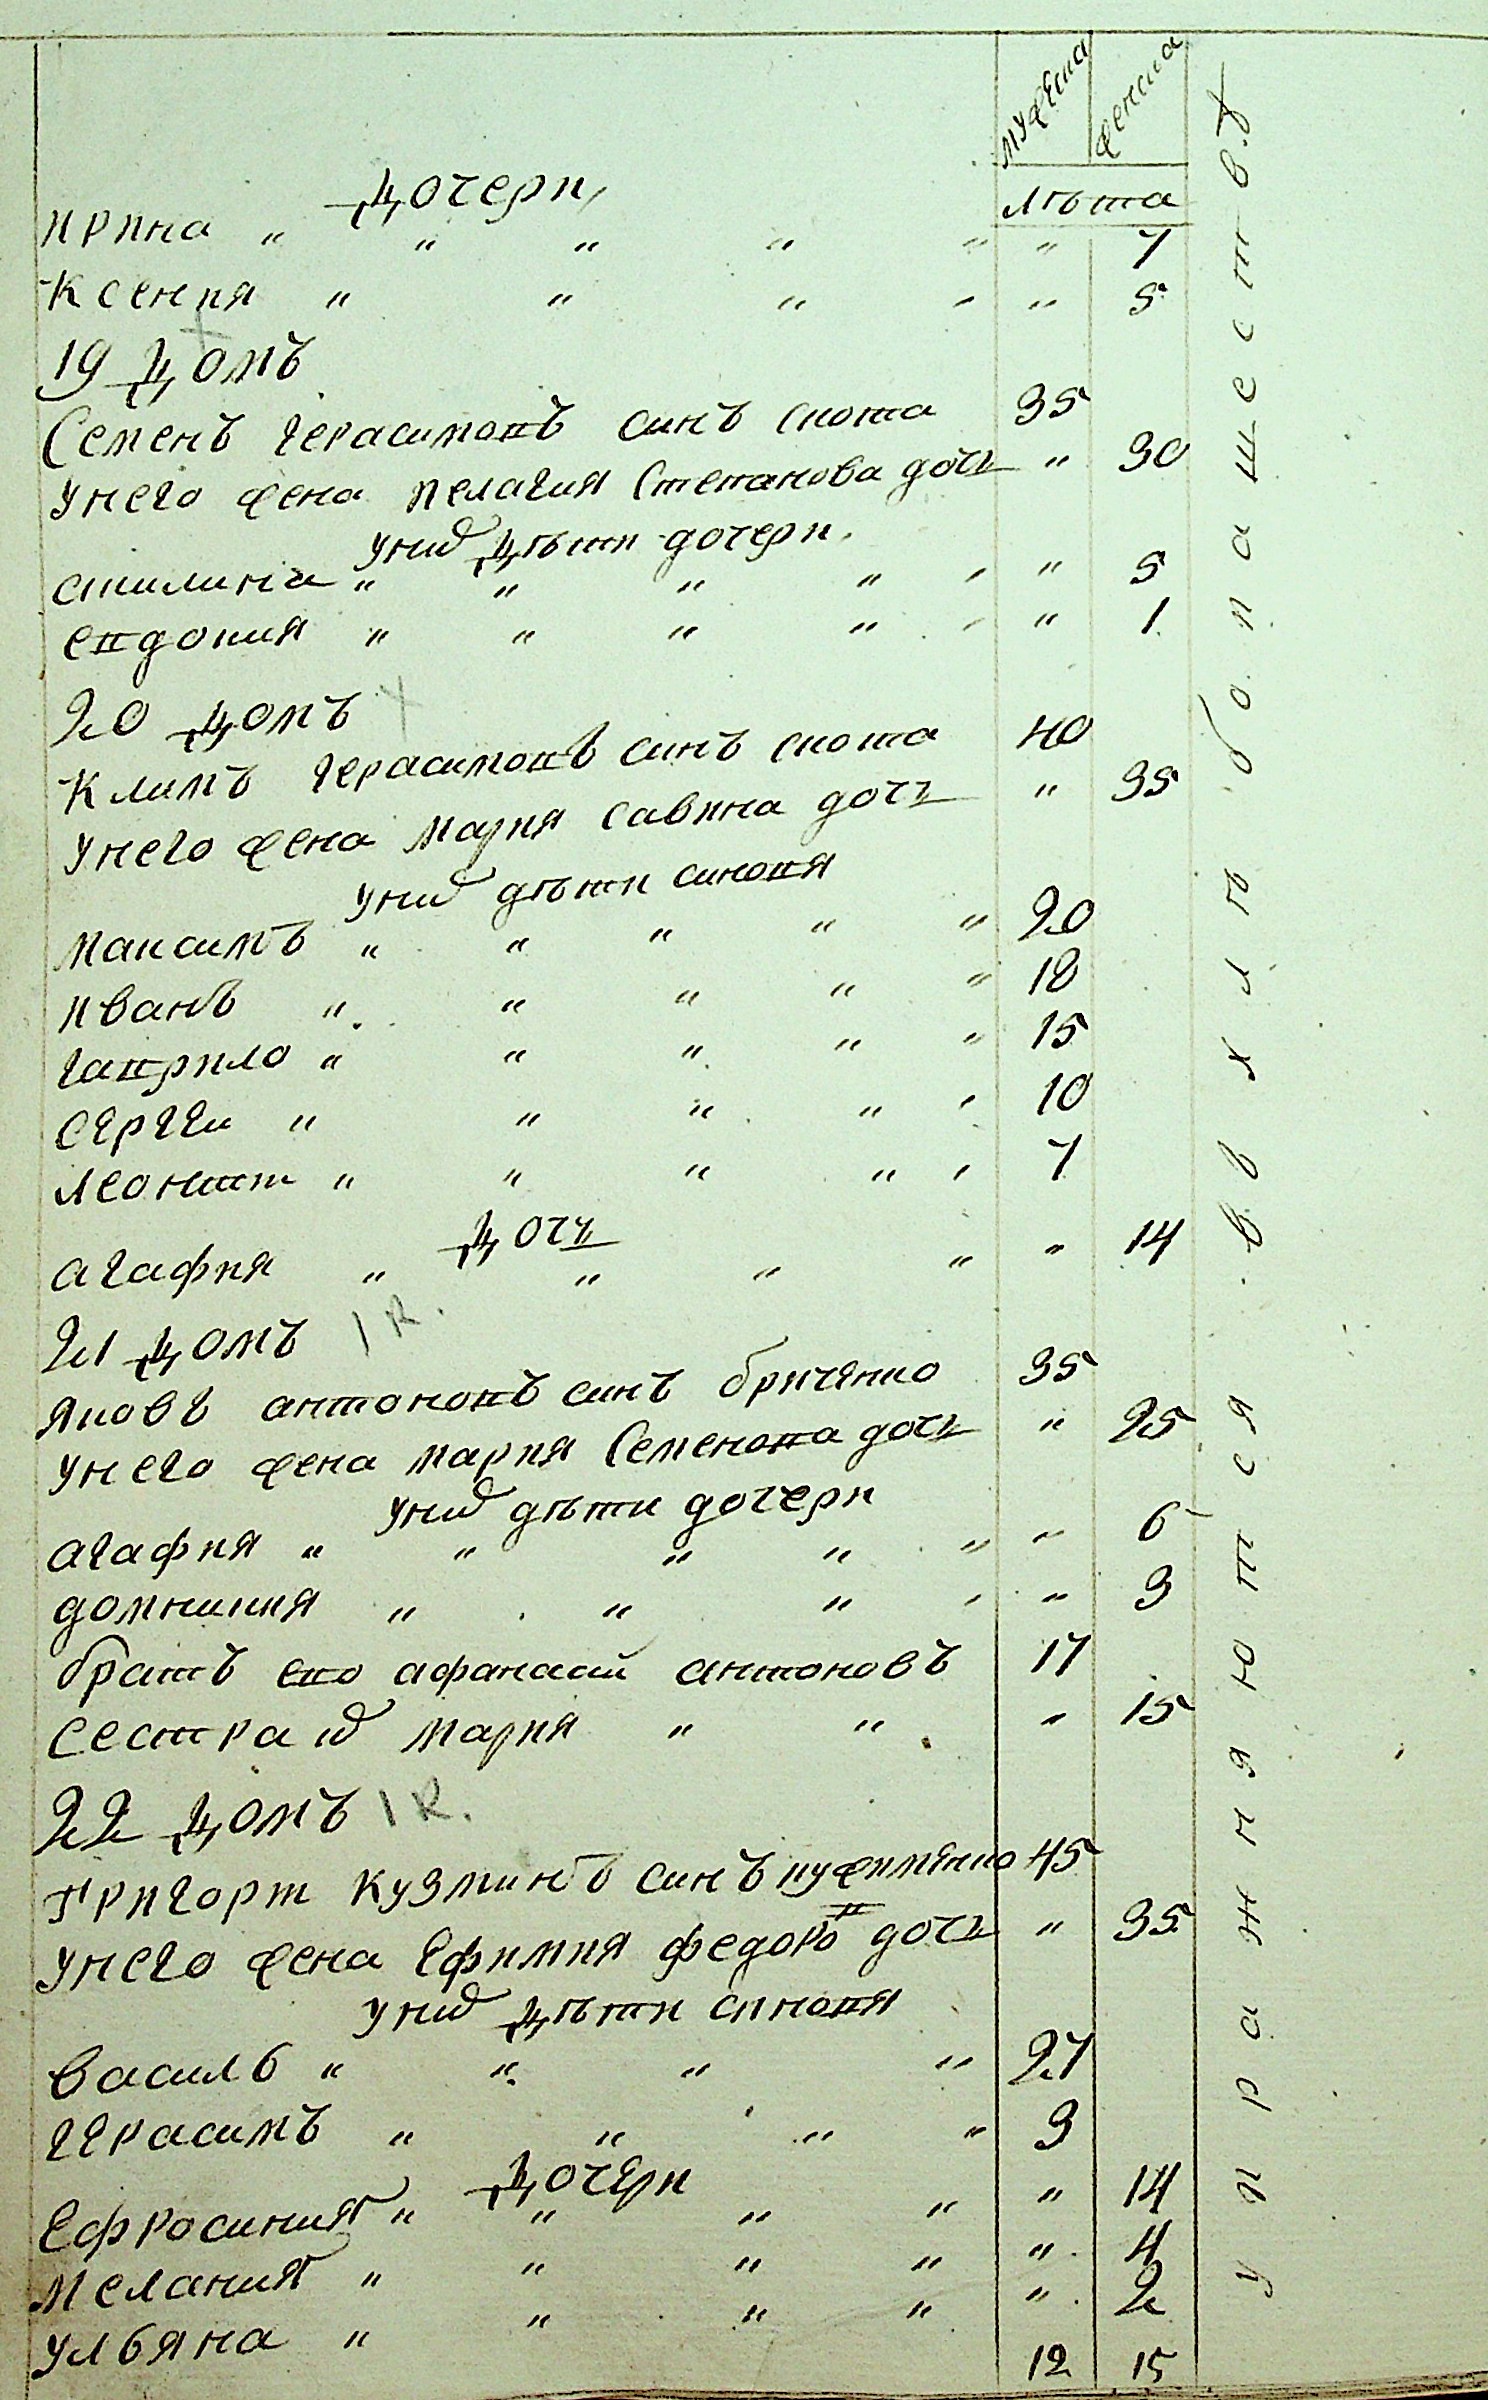 мужеска женска
лѣта
дочери
ирина " " " " " " 7
Ксения " " " " " 5
19 домъ
Семенъ герасимовъ синъ скота 35
унего жена пелагия Степанова дочь " 30
уних дѣти дочери
акилина " " " " " " 5
евдокия " " " " " " 1
20 домъ
Климъ герасимовъ синъ скота 40
унего жена мария савина дочь " 35
уних дѣти синовя
максимъ " " " " " 20
иванъ " " " " " 18
гаврило " " " " " 15
сергеи " " " " " 10
леонтт " " " " " 7
дочь
агафия " " " " " 14
21 домъ 1 к.
яковъ антоновъ синъ бриченко 35
унего жена мария Семенова дочь " 25
уних дѣти дочери
агафия " " " " " " 6
домникия " " " " " 3
братъ ево афанасий антоновъ 17
сестра их мария " " " 15
22 домъ 1 к.
Григорт кузминъ синъ кужимянко 45
унего жена ефимия федоров дочь " 35
уних дѣти синовя
василь " " " " 27
герасимъ " " " " 3
дочери
ефросиния " " " " " 14
мелания " " " " " 4
ульяна " " " " " 2
12 15
упражняются в хлѣбопашеств.